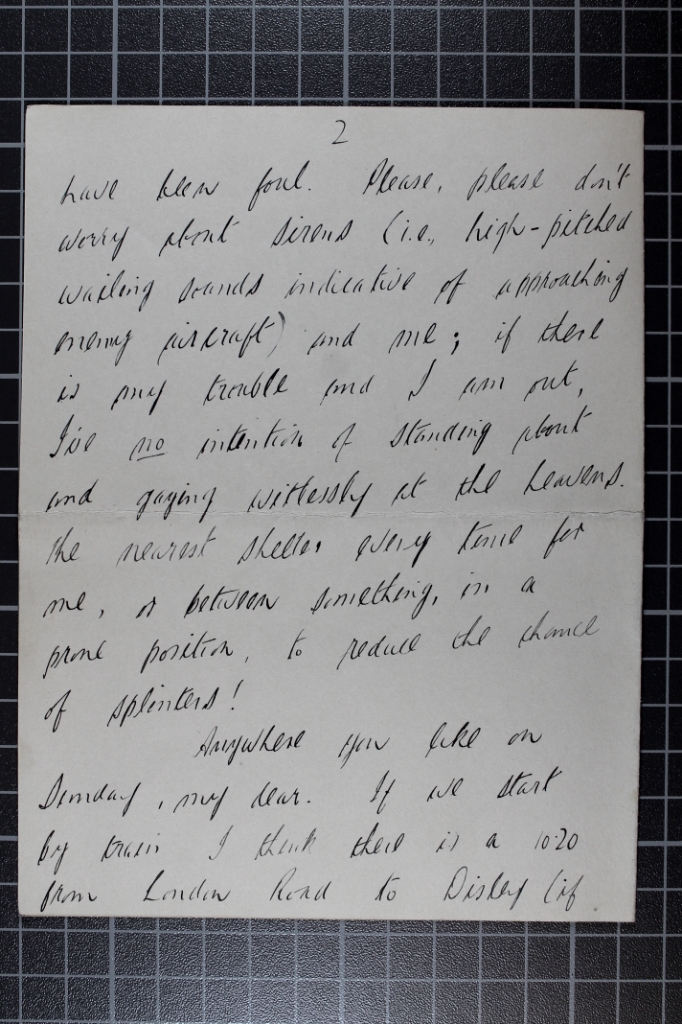 2
have been foul. Please, please don't
worry about sirens (i.e., high-pitched
wailing sounds indicative of approaching
enemy aircraft) and me; if there
is any trouble and I am out,
I've no intention of standing about
and gazing witlessly at the heavens.
The nearest shelter every time for
me, or between something, in a
prone position, to reduce the chance
of splinters!
Anywhere you like on
Sunday, my dear. If we start
by train I think there is a 10.20
from London Road to Disley (if